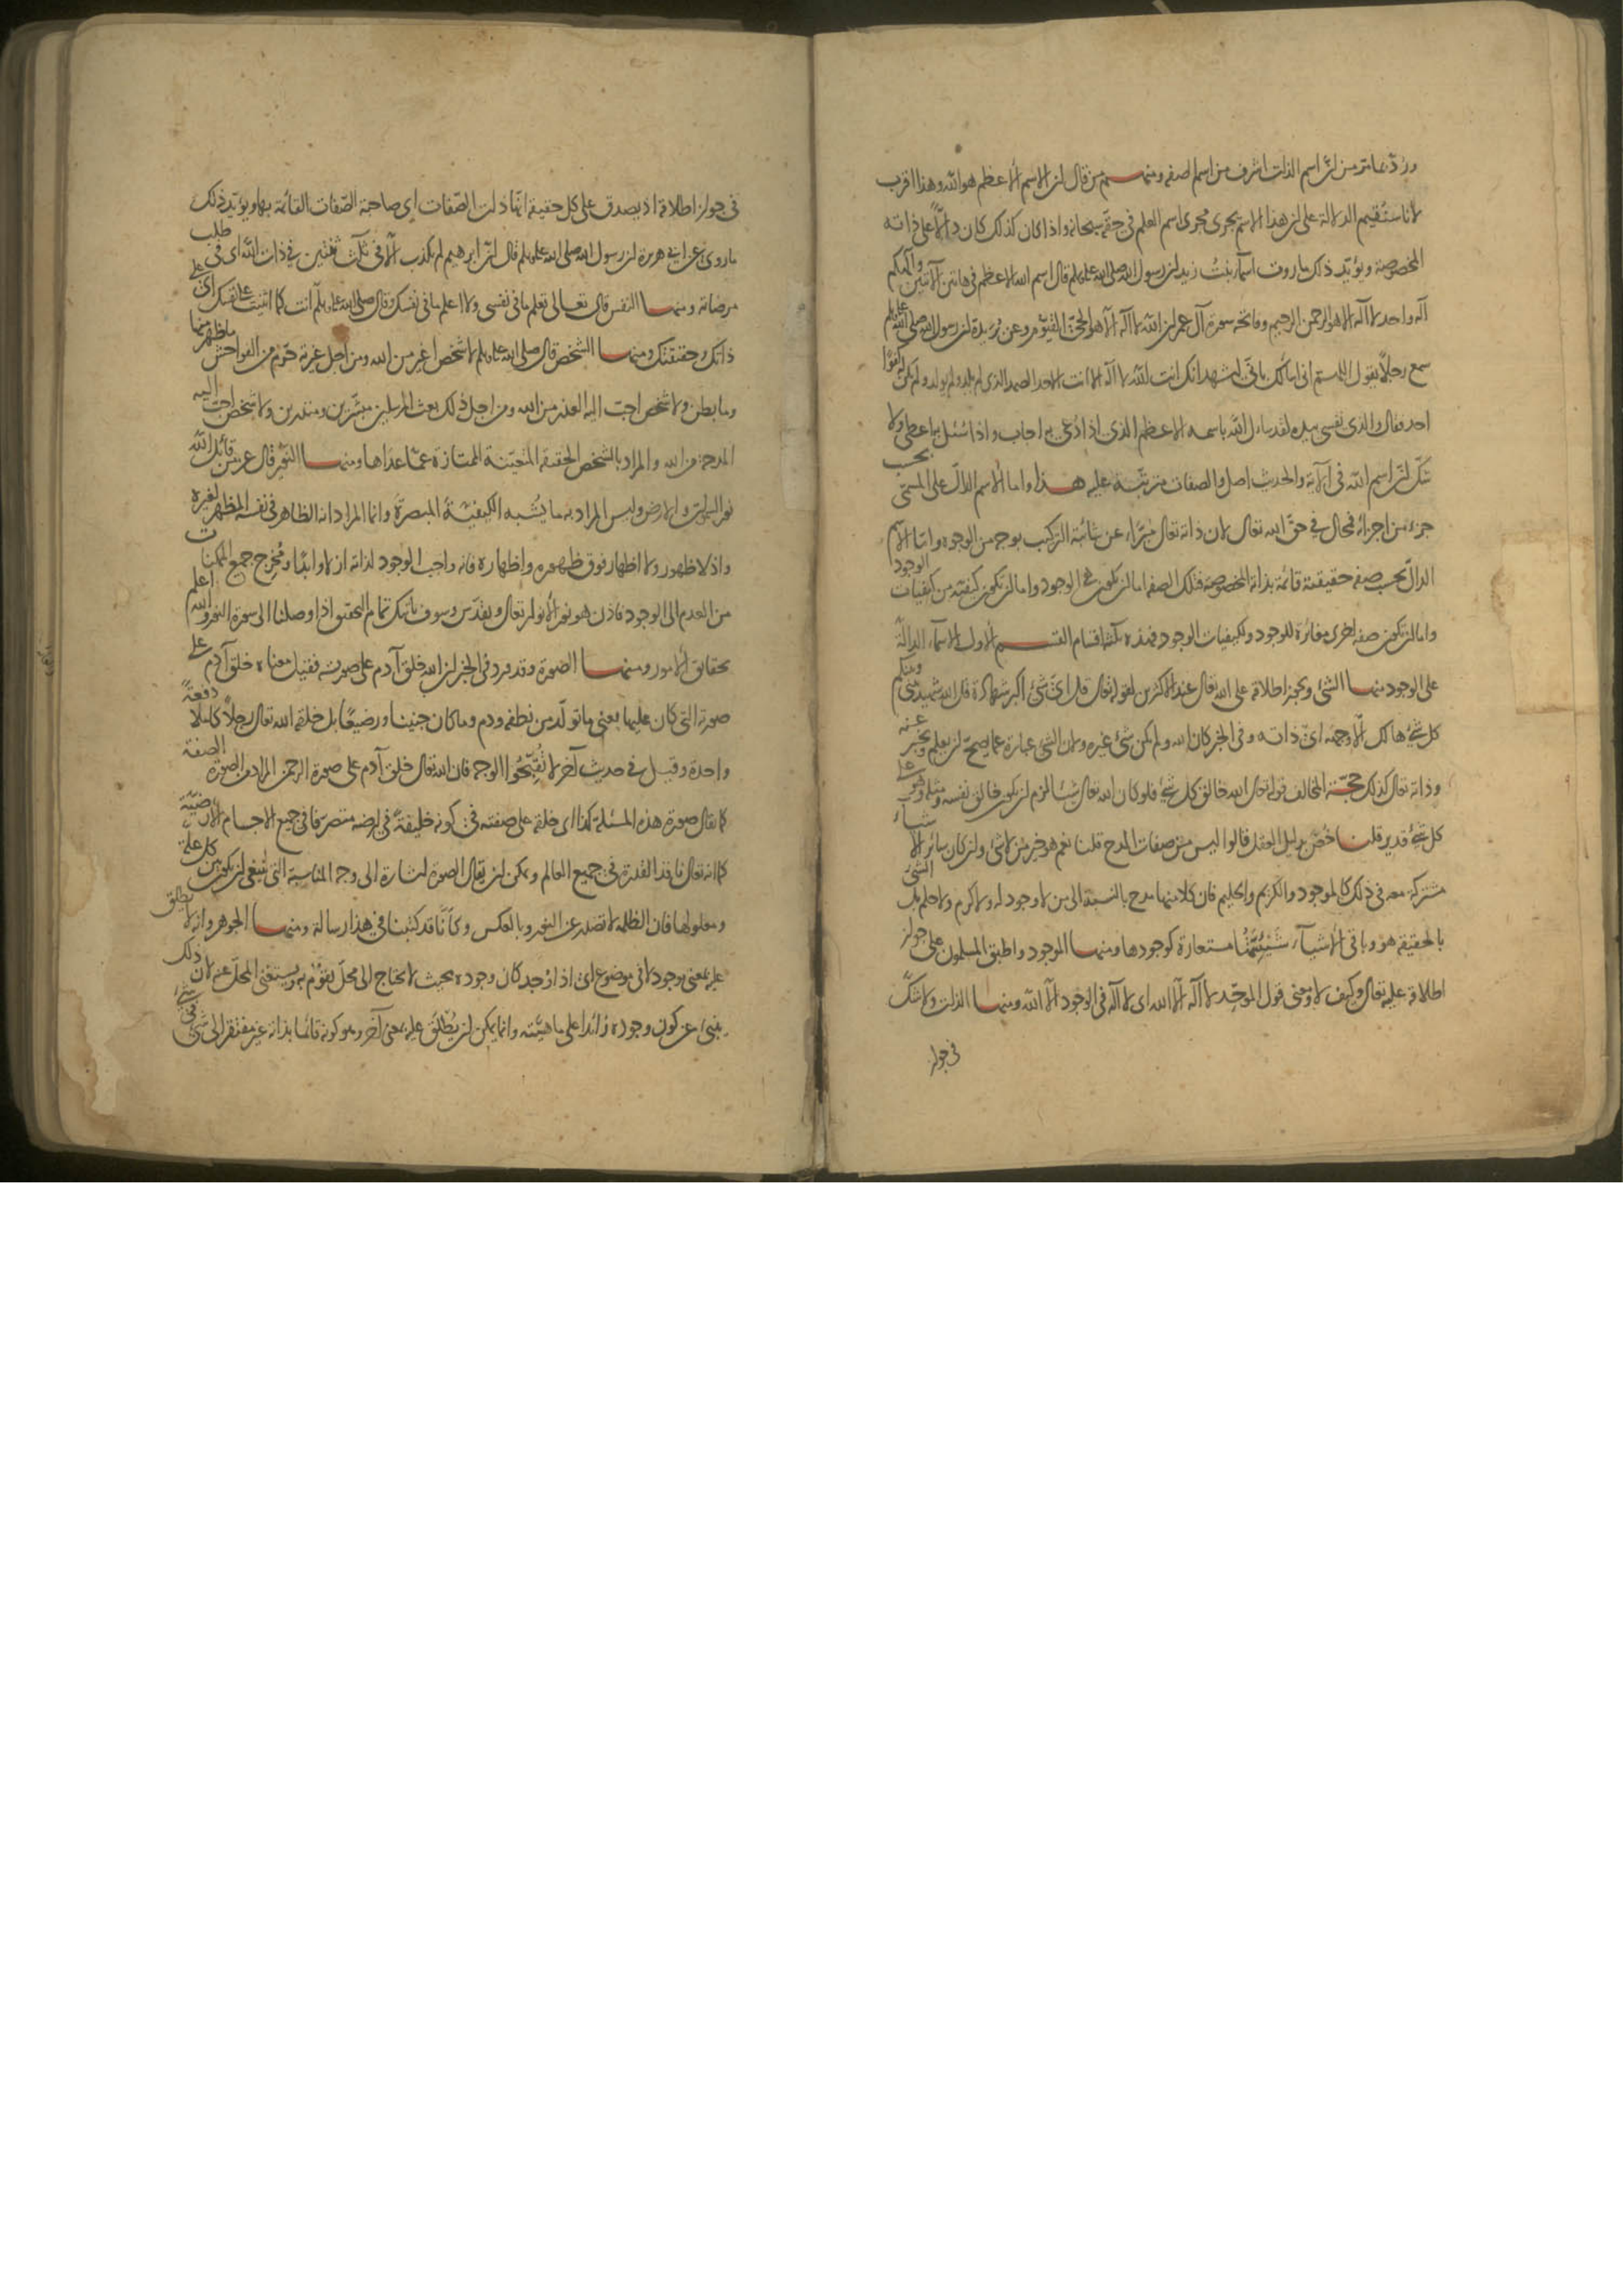 ورُدّ بما مرّ من انّ اسم الذات اشرف من اسم الصفه ومنهم من قال ان الاسم الاعظم هو الله وهذا اقرب
لانا سنُقيم الدلالة على ان هذا الاسم يجرى مجرى اسم العلم في حقه سبحانه واذا كان كذلك كان دالّاً على ذاته
المخصوصة ويؤيّد ذلك ما روت اسمآء بنتُ زيد ان رسول الله صلى الله عليه وسلم قال اسم الله الاعظم في هاتين الآيتين وآلهكم
آله واحد لا آله الا هو الرحمن الرحيم وفاتحة سورة آل عمران الله لا آله الا هو الحىّ القيّوم وعن بُريدة ان رسول الله صلى الله عليه وسلم
سمع رجلاً يقول اللهم انى اسألك بانّى اشهد انك انت الله لا آله الا انت الاحد الصمد الذى لم يلد ولم يولد ولم يكن له كفوًا
احد فقال والذى نفسى بيده لقد سأل الله باسمه الاعظم الذى اذا دُعى به اجاب واذا سُئل به اعطى ولا
شكّ انّ اسم الله فى الآية والحديث اصل والصفات مترتّبة عليه هذا واما الاسم الدالّ على المسمّى بحسب
جزء من اجزائه فمحال في حقّ الله تعالى لان ذاته تعالى مُبرّاء عن شائبة التركيب بوجه من الوجوه واما الاسم
الدالّ بحسب صفة حقيقية قائمة بذاته المخصوصة فتلك الصفه اما ان تكون هى الوجود واما ان تكون كيفيّة من كيفيات الوجود
واما ان تكون صفه اخرى مغائرة للوجود ولكيفيات الوجود فهذه ثلثة اقسام القسم الاول الاسمآء الدالّة
على الوجود منها الشئ ويجوز اطلاقه على الله تعالى عند الاكثرين لقوله تعالى قل اىّ شئ اكبر شهادة قل الله شهيد بينى وبينكم
كل شئ هالك الّا وجهه اى ذاته وفى الخبر كان الله ولم يكن شئ غيره ولان الشئ عبارة عما يصحّ ان يعلم ويخبر عنه
وذاته تعالى كذلك حجّة المخالف قوله تعالى الله خالق كل شئ فلو كان الله تعالى شيئا لزم ان يكون خالق نفسه ومثله وهو على
كل شئ قدير قلنا خُصّ بدليل العقل قالوا ليس من صفات المدح قلنا نعم هو خير من لا شئ وان كان سائر الاشيآء
مشتركة معه فى ذلك كالموجود والكريم والحليم فان كلا منها مدح بالنسبة الى من لا وجود له ولا كرم ولا حلم بل الشئ
بالحقيقه هو وباقى الاشيآء شَيْئِيَّتُها مستعارة كوجودها ومنها الموجود واطبق المسلمون على جواز
اطلاقه عليه تعالى وكيف لا ومعنى قول الموحّد لا آله الّا الله اى لا آله فى الوجود الّا الله ومنها الذات ولا شكّ
فى جواز
فى جواز اطلاقه اذ يصدق على كل حقيقه انها ذات الصّفات اى صاحبة الصّفات القائمة بها ويؤيّد ذلك
ما روى عن ابى هريرة ان رسول الله صلى الله عليه وسلم قال انّ ابرهيم لم يكذب الّا فى ثلث ثنتين فى ذات الله اى فى طلب
مرضاته ومنها النفس قال تعالى تعلم ما فى نفسى ولا اعلم ما فى نفسك وقال صلى الله عليه وسلم انت كما اثنيت على نفسك اى على
ذاتك وحقيقتك ومنها الشخص قال صلى الله عليه وسلم لا شخص اغير من الله ومن اجل غيرته حرّم الفواحش ما ظهر منها
وما بطن ولا شخص احبّ اليه العذر من الله ومن اجل ذلك بعث المرسلين مبشّرين ومنذرين ولا شخص احبّ اليه
المدحة من الله والمراد بالشخص الحقيقة المتعيّنة الممتازة عمّا عداها ومنها النور قال عزّ من قائل الله
نور السموات والارض وليس المراد به ما يُشبه الكيفيّة المبصرة وانما المراد انه الظاهر فى نفسه المظهر لغيره
واذ لا ظهور ولا اظهار فوق ظهوره واظهاره فانه واجب الوجود لذاته ازلا وابدًا ومُخرج جميع الممكنات
من العدم الى الوجود فاذن هو نور الانوار تعالى وتقدّس وسوف يأتيك تمام التحقيق اذا وصلنا الى سورة النور والله اعلم
بحقايق الامور ومنها الصورة وقد ورد فى الخبر ان الله خلق آدم على صورته فقيل معناه خلق آدم على
صورته التى كان عليها يعنى ما تولّد من نطفه ودم وما كان جنينا ورضيعًا بل خلقه الله تعالى رجلاً كاملا دفعةً
واحدة وقيل فى حديث آخر لا تُقبّحوا الوجه فان الله تعالى خلق آدم على صورة الرحمن المراد من الصورة الصفة
كما يقال صورة هذه المسئلة كذا اى خلقه على صفته فى كونه خليفةً فى ارضه متصرّفا فى جميع الاجسام الارضيّة
كما انه تعالى نافذ القدرة فى جميع العالم ويمكن ان يقال الصورة اشارة الى وجه المناسبة التى ينبغى ان يكون بين كل علة
ومعلولها فان الظلمه لا تصدر عن النور وبالعكس وكأنّا قد كتبنا فى هذا رسالة ومنها الجوهر وانه لا يطلق
عليه بمعنى موجود لا فى موضوع اى اذا وُجد كان وجوده بحيث لا يحتاج الى محلّ يتقوّم به ويستغنى المحل عنه لان ذلك
ينبئ عن كون وجوده زائدا على ماهيّته وانما يمكن ان يُطلق عليه بمعنى آخر وهو كونه قائما بذاته غير مفتقر الى شئ فى شئ